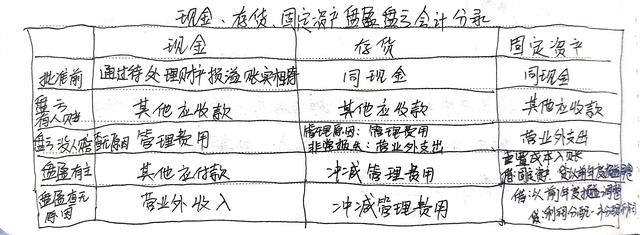 现金、存货、固定资产盘盈盘亏会计分录
现金 存货 固定资产
批准前 通过待处理财产损溢 账实相符 同现金 同现金
盘亏
有人赔 其他应收款 其他应收款 其他应收款
盘亏没人赔 无原因 管理费用 管理原因：管理费用
非常损失：营业外支出 营业外支出
盘盈有主 其他应付款 冲减管理费用 重置成本入账
借：固定资产 贷：以前年度损益调整
盘盈有无
原因 营业外收入 冲减管理费用 借：以前年度损益调整
贷：利润分配-未分配利润